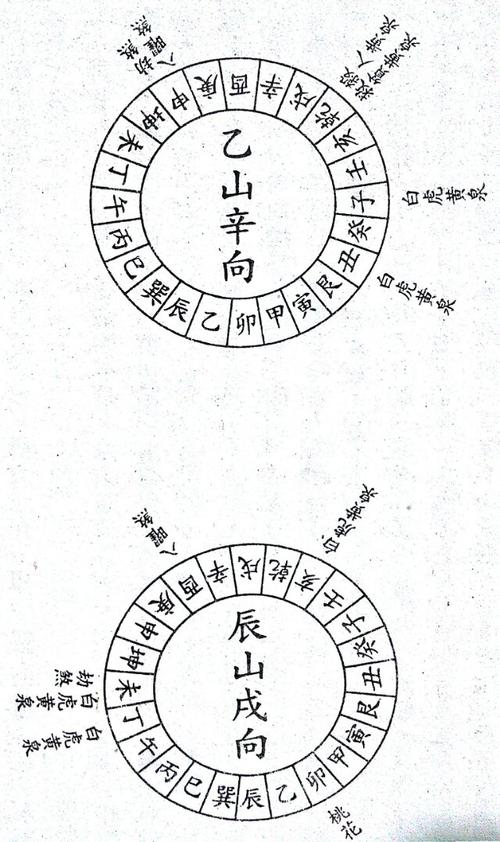 八曜煞
劫煞
白虎黃泉
白虎黃泉
酉辛戌乾亥壬子癸丑艮寅甲卯乙辰巽巳丙午丁未坤申庚
乙山辛向
八曜煞
白虎黃泉
劫煞
白虎黃泉
白虎黃泉
桃花
戌乾亥壬子癸丑艮寅甲卯乙辰巽巳丙午丁未坤申庚酉辛
辰山戌向